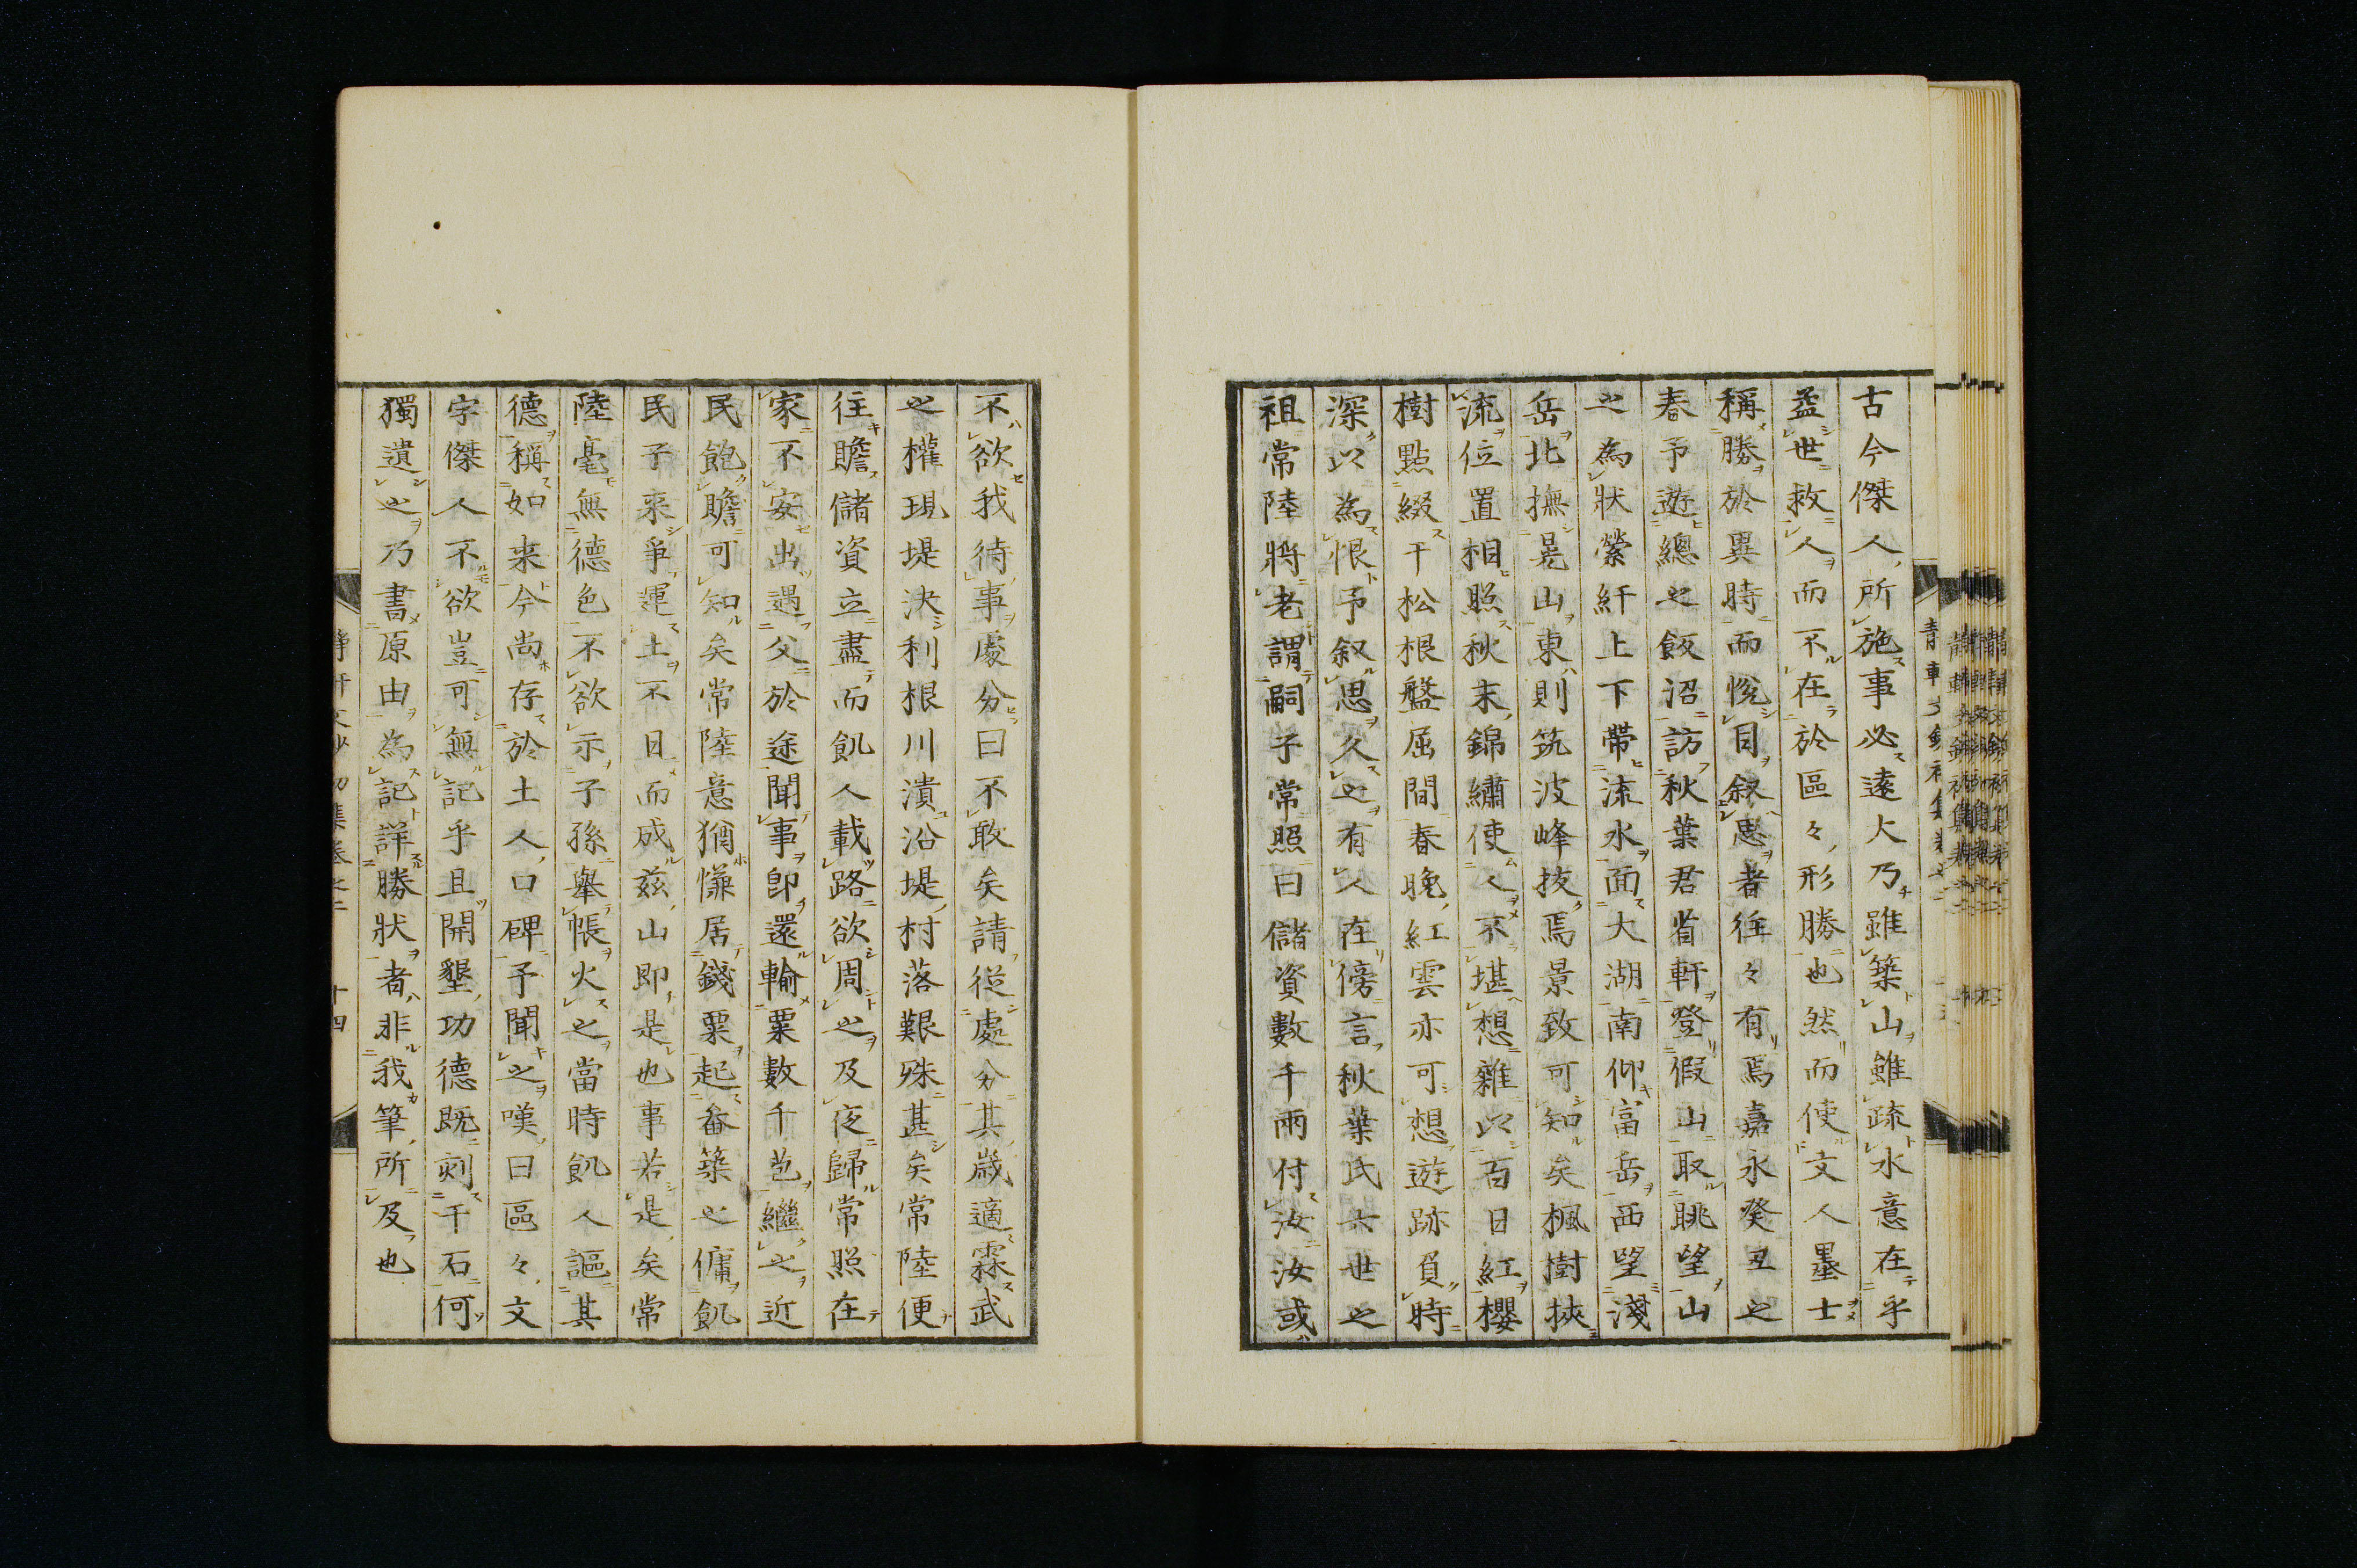 古今傑人所施事必遠大乃雖築山雖疏水意在乎
益世救人而不在於區々形勝也然而使文人墨士
稱勝於異時而悅目叙思者往々有焉嘉永癸丑之
春予遊總之飯沼訪秋葉君省軒登假山取眺望山
之為狀縈紆上下帶流水面大湖南仰富岳西望淺
岳北撫晃山東則筑波峰抜焉景致可知矣楓樹挾
流位置相照秋末錦繡使人不堪想雜以百日紅櫻
樹點綴干松根盤屈間春晚紅雲亦可想遊跡負時
深以為恨予叙思久之有人在傍言秋葉氏六世之
祖常陸將老謂嗣子常照曰儲資數千兩付汝汝或
不欲我待事處分曰不敢矣請從處分其歲適霖武
之權現堤決利根川潰沿堤村落艱殊甚矣常陸便
往贍儲資立盡而飢人載路欲周之及夜歸常照在
家不安出遇父於途聞事即還輸粟數千苞繼之近
民飽贍可知矣常陸意猶慊居錢粟起畚築之傭飢
民子来爭運土不日而成茲山即是也事若是矣常
陸毫無德色不欲示子孫舉帳火之當時飢人謳其
德稱如来今尚存於土人口碑予聞之嘆曰區々文
字傑人不欲豈可無記乎且開墾功德既刻干石何
獨遺之乃書原由為記詳勝狀者非我筆所及也
十四